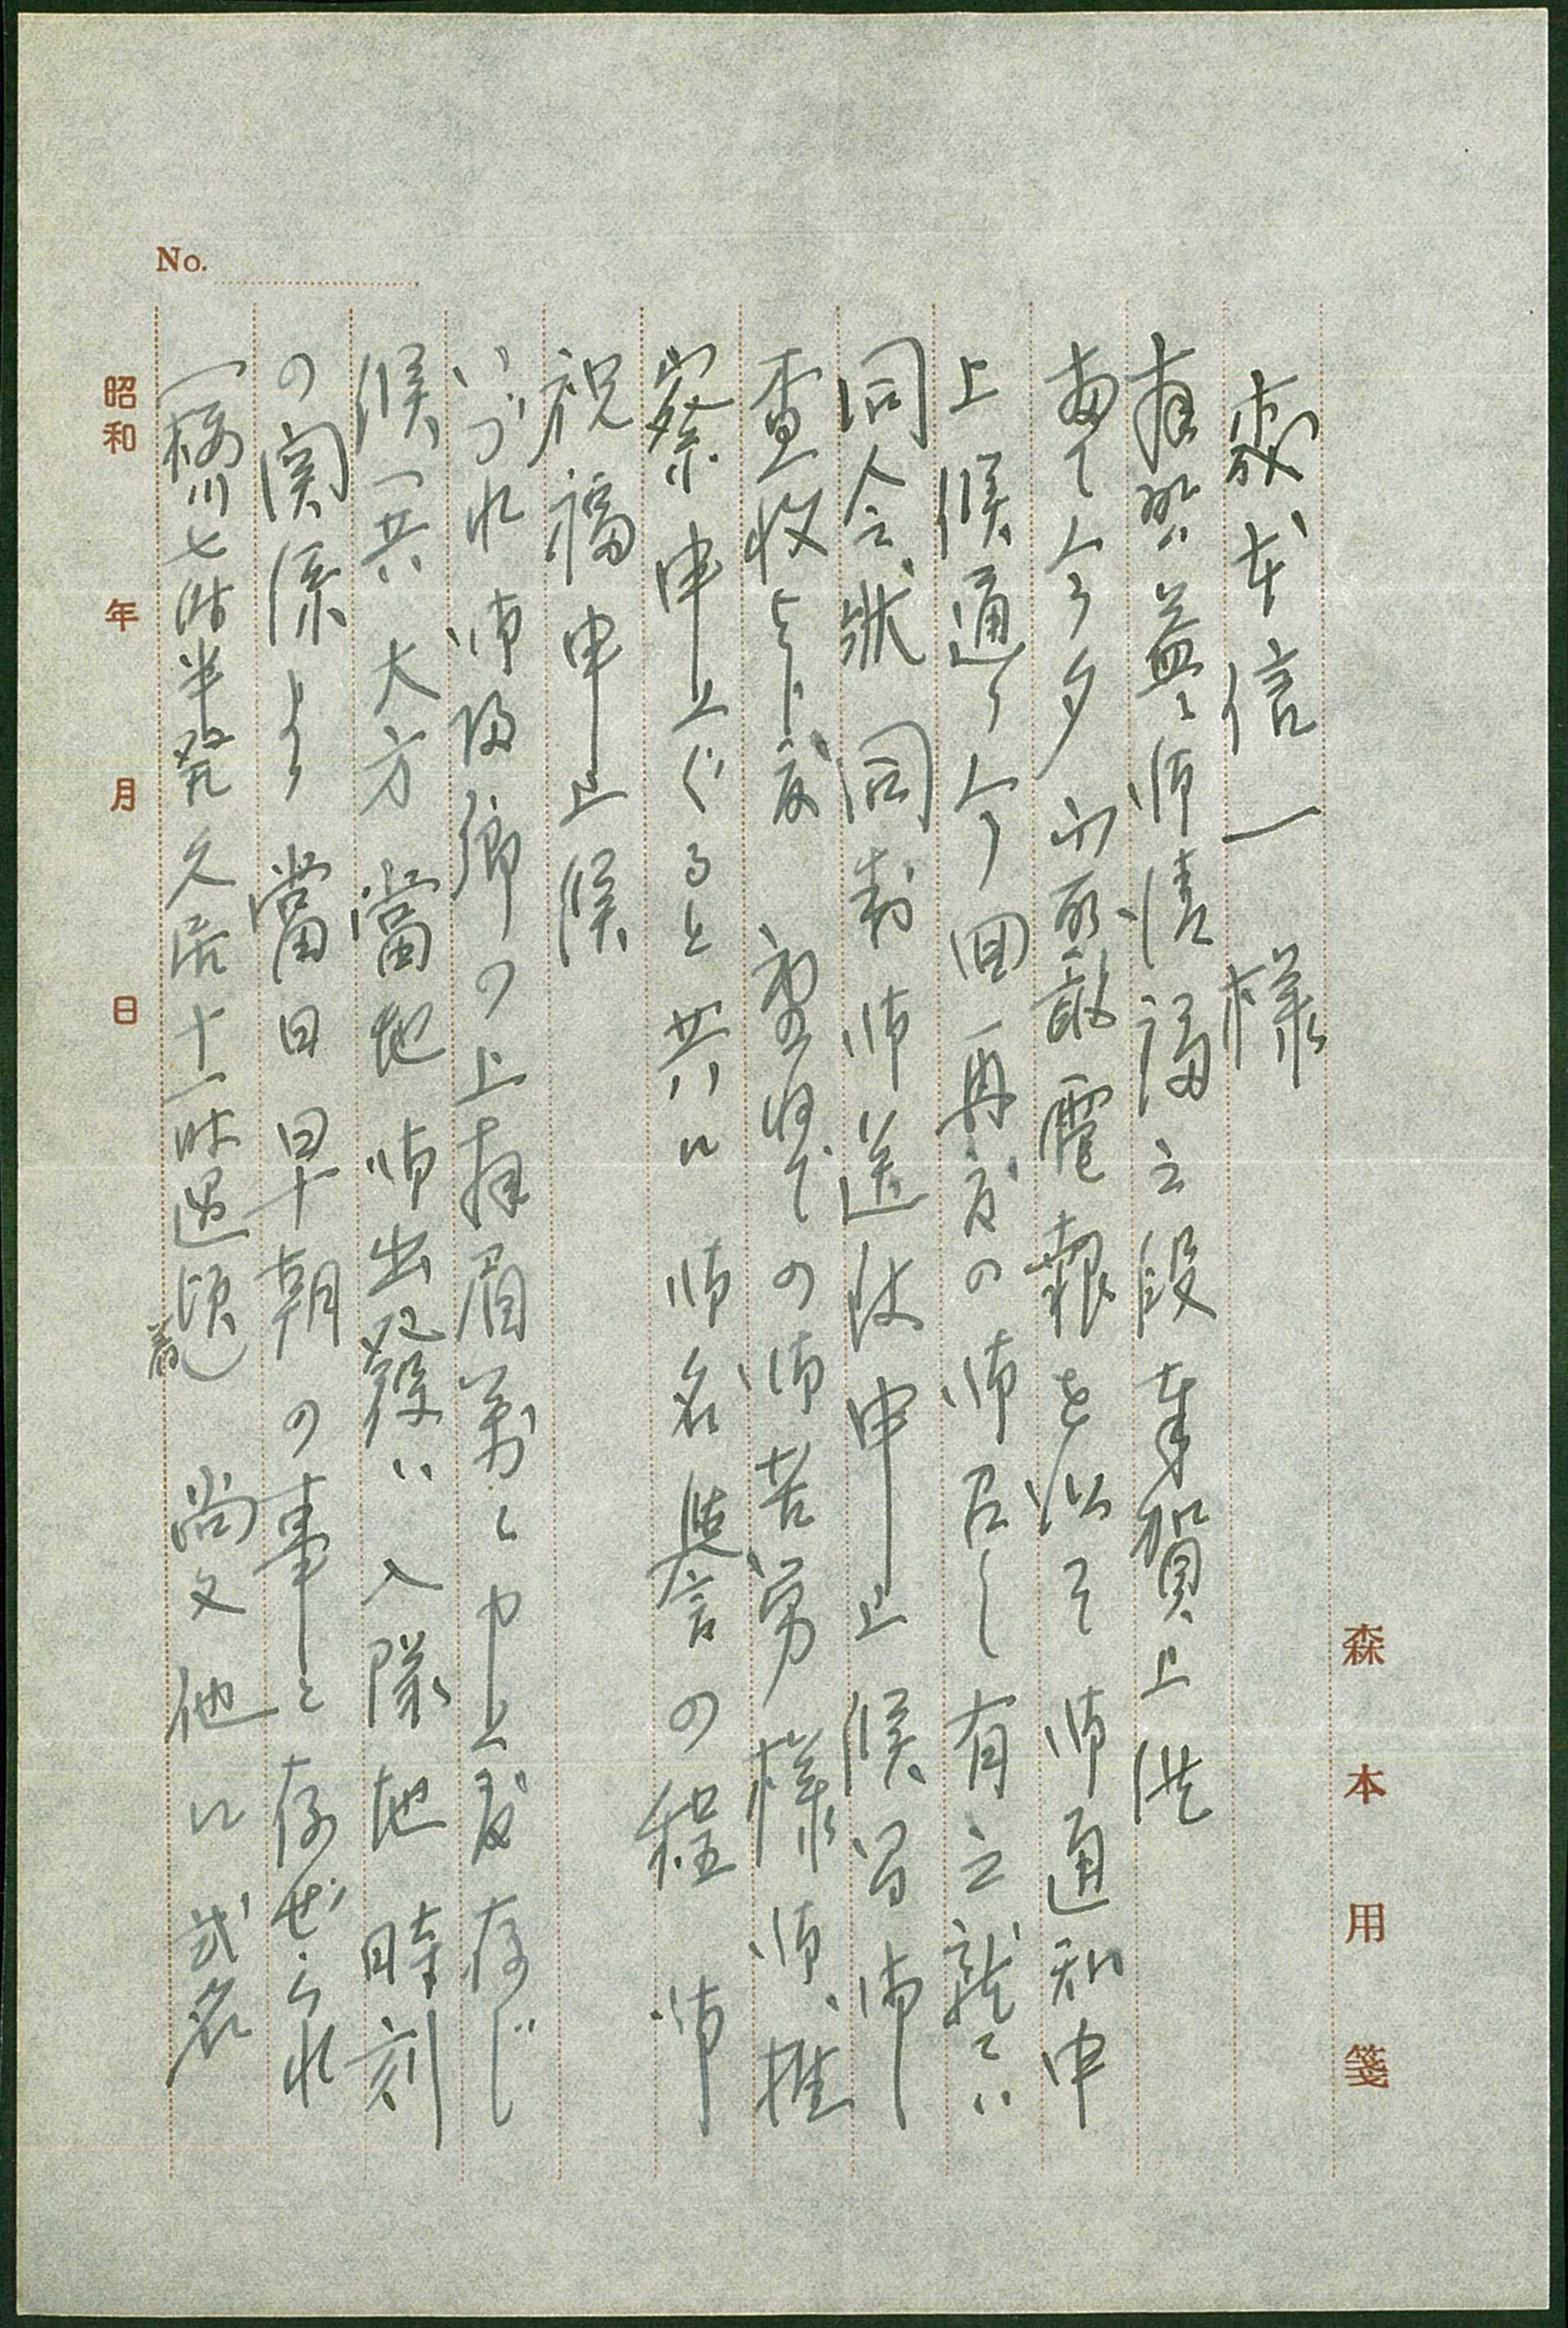 森本用箋
森本信一様
拝啓益々御清福之段奉賀上候
偖て今夕不取敢電報を以て御通知申
上候通り今回再度の御召し有之就ては
同令状同封御送付申上候間御
査收被下度 重ねての御苦労様御推
察申上ぐると共に御名誉の程御
祝福申上候
いづれ御帰郷の上拝眉萬々申上度存じ
候(共)大方當地御出発後は入隊地時刻
の関係より當日早朝の事と存ぜられ
(桜川七時半発久居十一時過頃着) 尚又他に弐名
No.
昭和 年 月 日